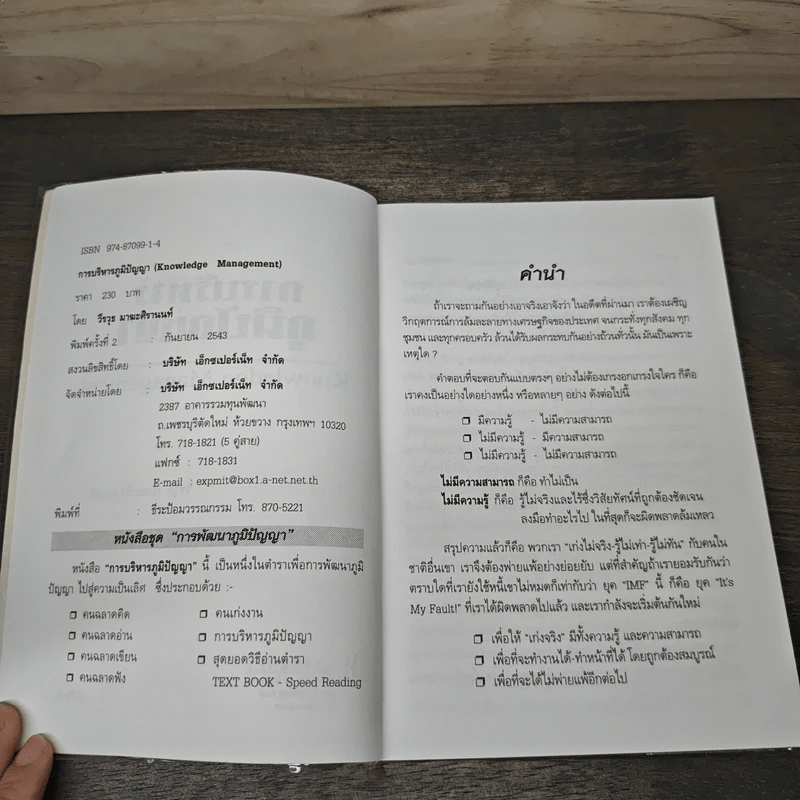 ISBN 974-87099-1-4
การบริหารภูมิปัญญา (Knowledge Management)
ราคา 230 บาท
โดย วีรวุธ มาฆะศิรานนท์
พิมพ์ครั้งที่ 2 : กันยายน 2543
สงวนลิขสิทธิ์โดย : บริษัท เอ็กซเปอร์เน็ท จำกัด
จัดจำหน่ายโดย : บริษัท เอ็กซเปอร์เน็ท จำกัด
2387 อาคารรวมทุนพัฒนา
ถ.เพชรบุรีตัดใหม่ ห้วยขวาง กรุงเทพฯ 10320
โทร. 718-1821 (5 คู่สาย)
แฟกซ์ : 718-1831
E-mail : expmit@box1.a-net.net.th
พิมพ์ที่ : ธีระป้อมวรรณกรรม โทร. 870-5221
หนังสือชุด “การพัฒนาภูมิปัญญา”
หนังสือ “การบริหารภูมิปัญญา” นี้ เป็นหนึ่งในตำราเพื่อการพัฒนาภูมิ
ปัญญา ไปสู่ความเป็นเลิศ ซึ่งประกอบด้วย :-
❐ คนฉลาดคิด
❐ คนฉลาดอ่าน
❐ คนฉลาดเขียน
❐ คนฉลาดฟัง
❐ คนเก่งงาน
❐ การบริหารภูมิปัญญา
❐ สุดยอดวิธีอ่านตำรา
TEXT BOOK - Speed Reading
คำนำ
ถ้าเราจะถามกันอย่างเอาจริงเอาจังว่า ในอดีตที่ผ่านมา เราต้องเผชิญ
วิกฤตการณ์การล้มละลายทางเศรษฐกิจของประเทศ จนกระทั่งทุกสังคม ทุก
ชุมชน และทุกครอบครัว ล้วนได้รับผลกระทบกันอย่างถ้วนทั่วนั้น มันเป็นเพราะ
เหตุใด ?
คำตอบที่จะตอบกันแบบตรงๆ อย่างไม่ต้องเกรงอกเกรงใจใคร ก็คือ
เราคงเป็นอย่างใดอย่างหนึ่ง หรือหลายๆ อย่าง ดังต่อไปนี้
❐ มีความรู้ - ไม่มีความสามารถ
❐ ไม่มีความรู้ - มีความสามารถ
❐ ไม่มีความรู้ - ไม่มีความสามารถ
ไม่มีความสามารถ ก็คือ ทำไม่เป็น
ไม่มีความรู้ ก็คือ รู้ไม่จริงและไร้ซึ่งวิสัยทัศน์ที่ถูกต้องชัดเจน
ลงมือทำอะไรไป ในที่สุดก็จะผิดพลาดล้มเหลว
สรุปความแล้วก็คือ พวกเรา “เก่งไม่จริง-รู้ไม่เท่า-รู้ไม่ทัน” กับคนใน
ชาติอื่นเขา เราจึงต้องพ่ายแพ้อย่างย่อยยับ แต่ที่สำคัญถ้าเรายอมรับกันว่า
ตราบใดที่เรายังใช้หนี้เขาไม่หมดก็เท่ากับว่า ยุค “IMF” นี้ ก็คือ ยุค “It's
My Fault!” ที่เราได้ผิดพลาดไปแล้ว และเรากำลังจะเริ่มต้นกันใหม่
❐ เพื่อให้ “เก่งจริง” มีทั้งความรู้ และความสามารถ
❐ เพื่อที่จะทำงานได้-ทำหน้าที่ได้ โดยถูกต้องสมบูรณ์
❐ เพื่อที่จะได้ไม่พ่ายแพ้อีกต่อไป